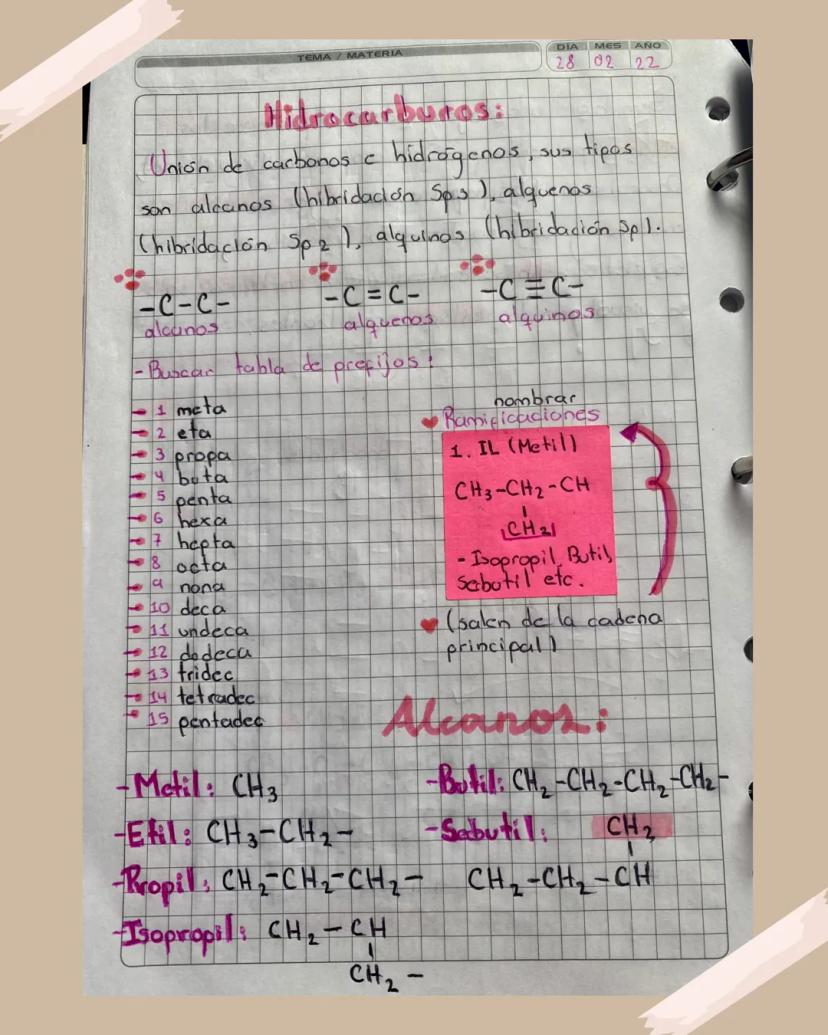 TEMA / MATERIA
DÍA MES AÑO
28 02 22
Hidrocarburos:
Unión de carbonos e hidrógenos, sus tipos
son alcanos (hibridación Sp3), alquenos
(hibridación Sp2), alquinos (hibridación Sp).
-C-C- -C=C- -C≡C-
alcanos alquenos alquinos
-Buscar tabla de prefijos:
1 meta
2 eta
3 propa
4 buta
5 penta
6 hexa
7 hepta
8 octa
9 nona
10 deca
11 undeca
12 dodeca
13 tridec
14 tetradec
15 pentadec
nombrar
Ramificaciones
1. IL (Metil)
CH3-CH2-CH
|
CH2
- Isopropil, Butil,
Secbutil etc.
(salen de la cadena
principal)
Alcanos:
-Metil: CH3
-Etil: CH3-CH2-
-Propil: CH2-CH2-CH2-
-Isopropil: CH2-CH
|
CH2 -
-Butil: CH2-CH2-CH2-CH2-
-Secbutil: CH2
|
CH2-CH2-CH